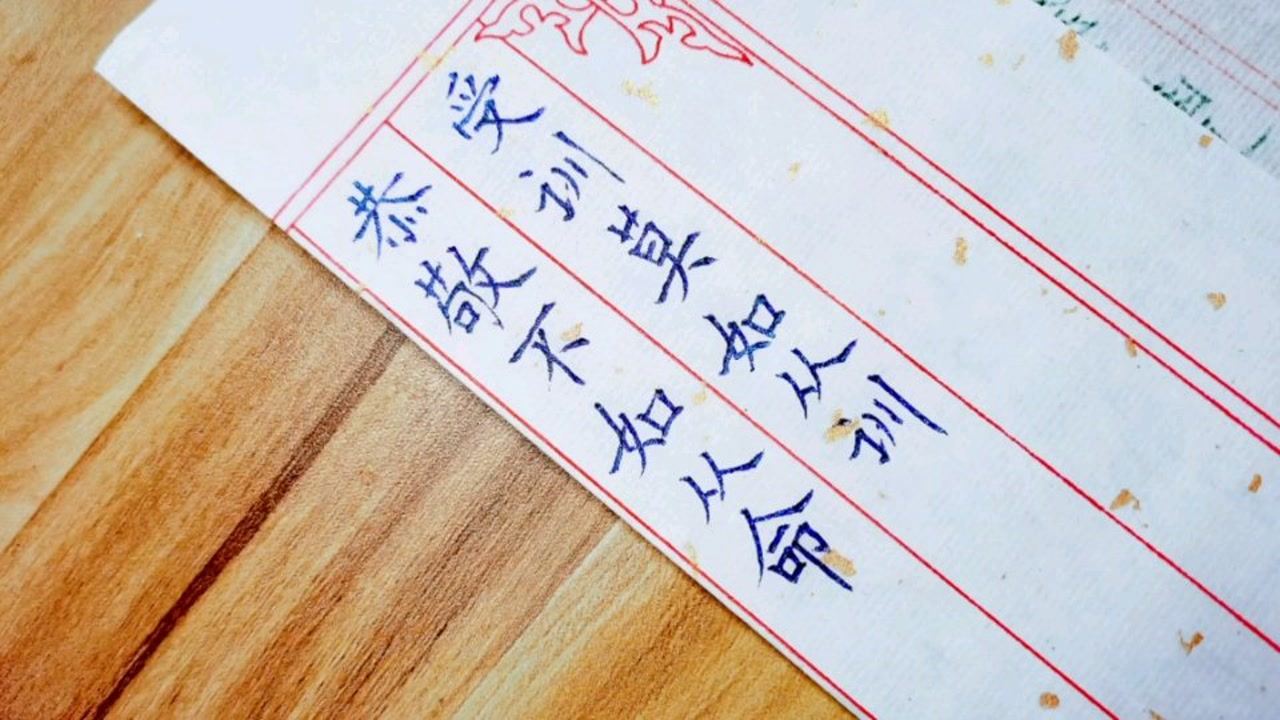 受训莫如从训
恭敬不如从命